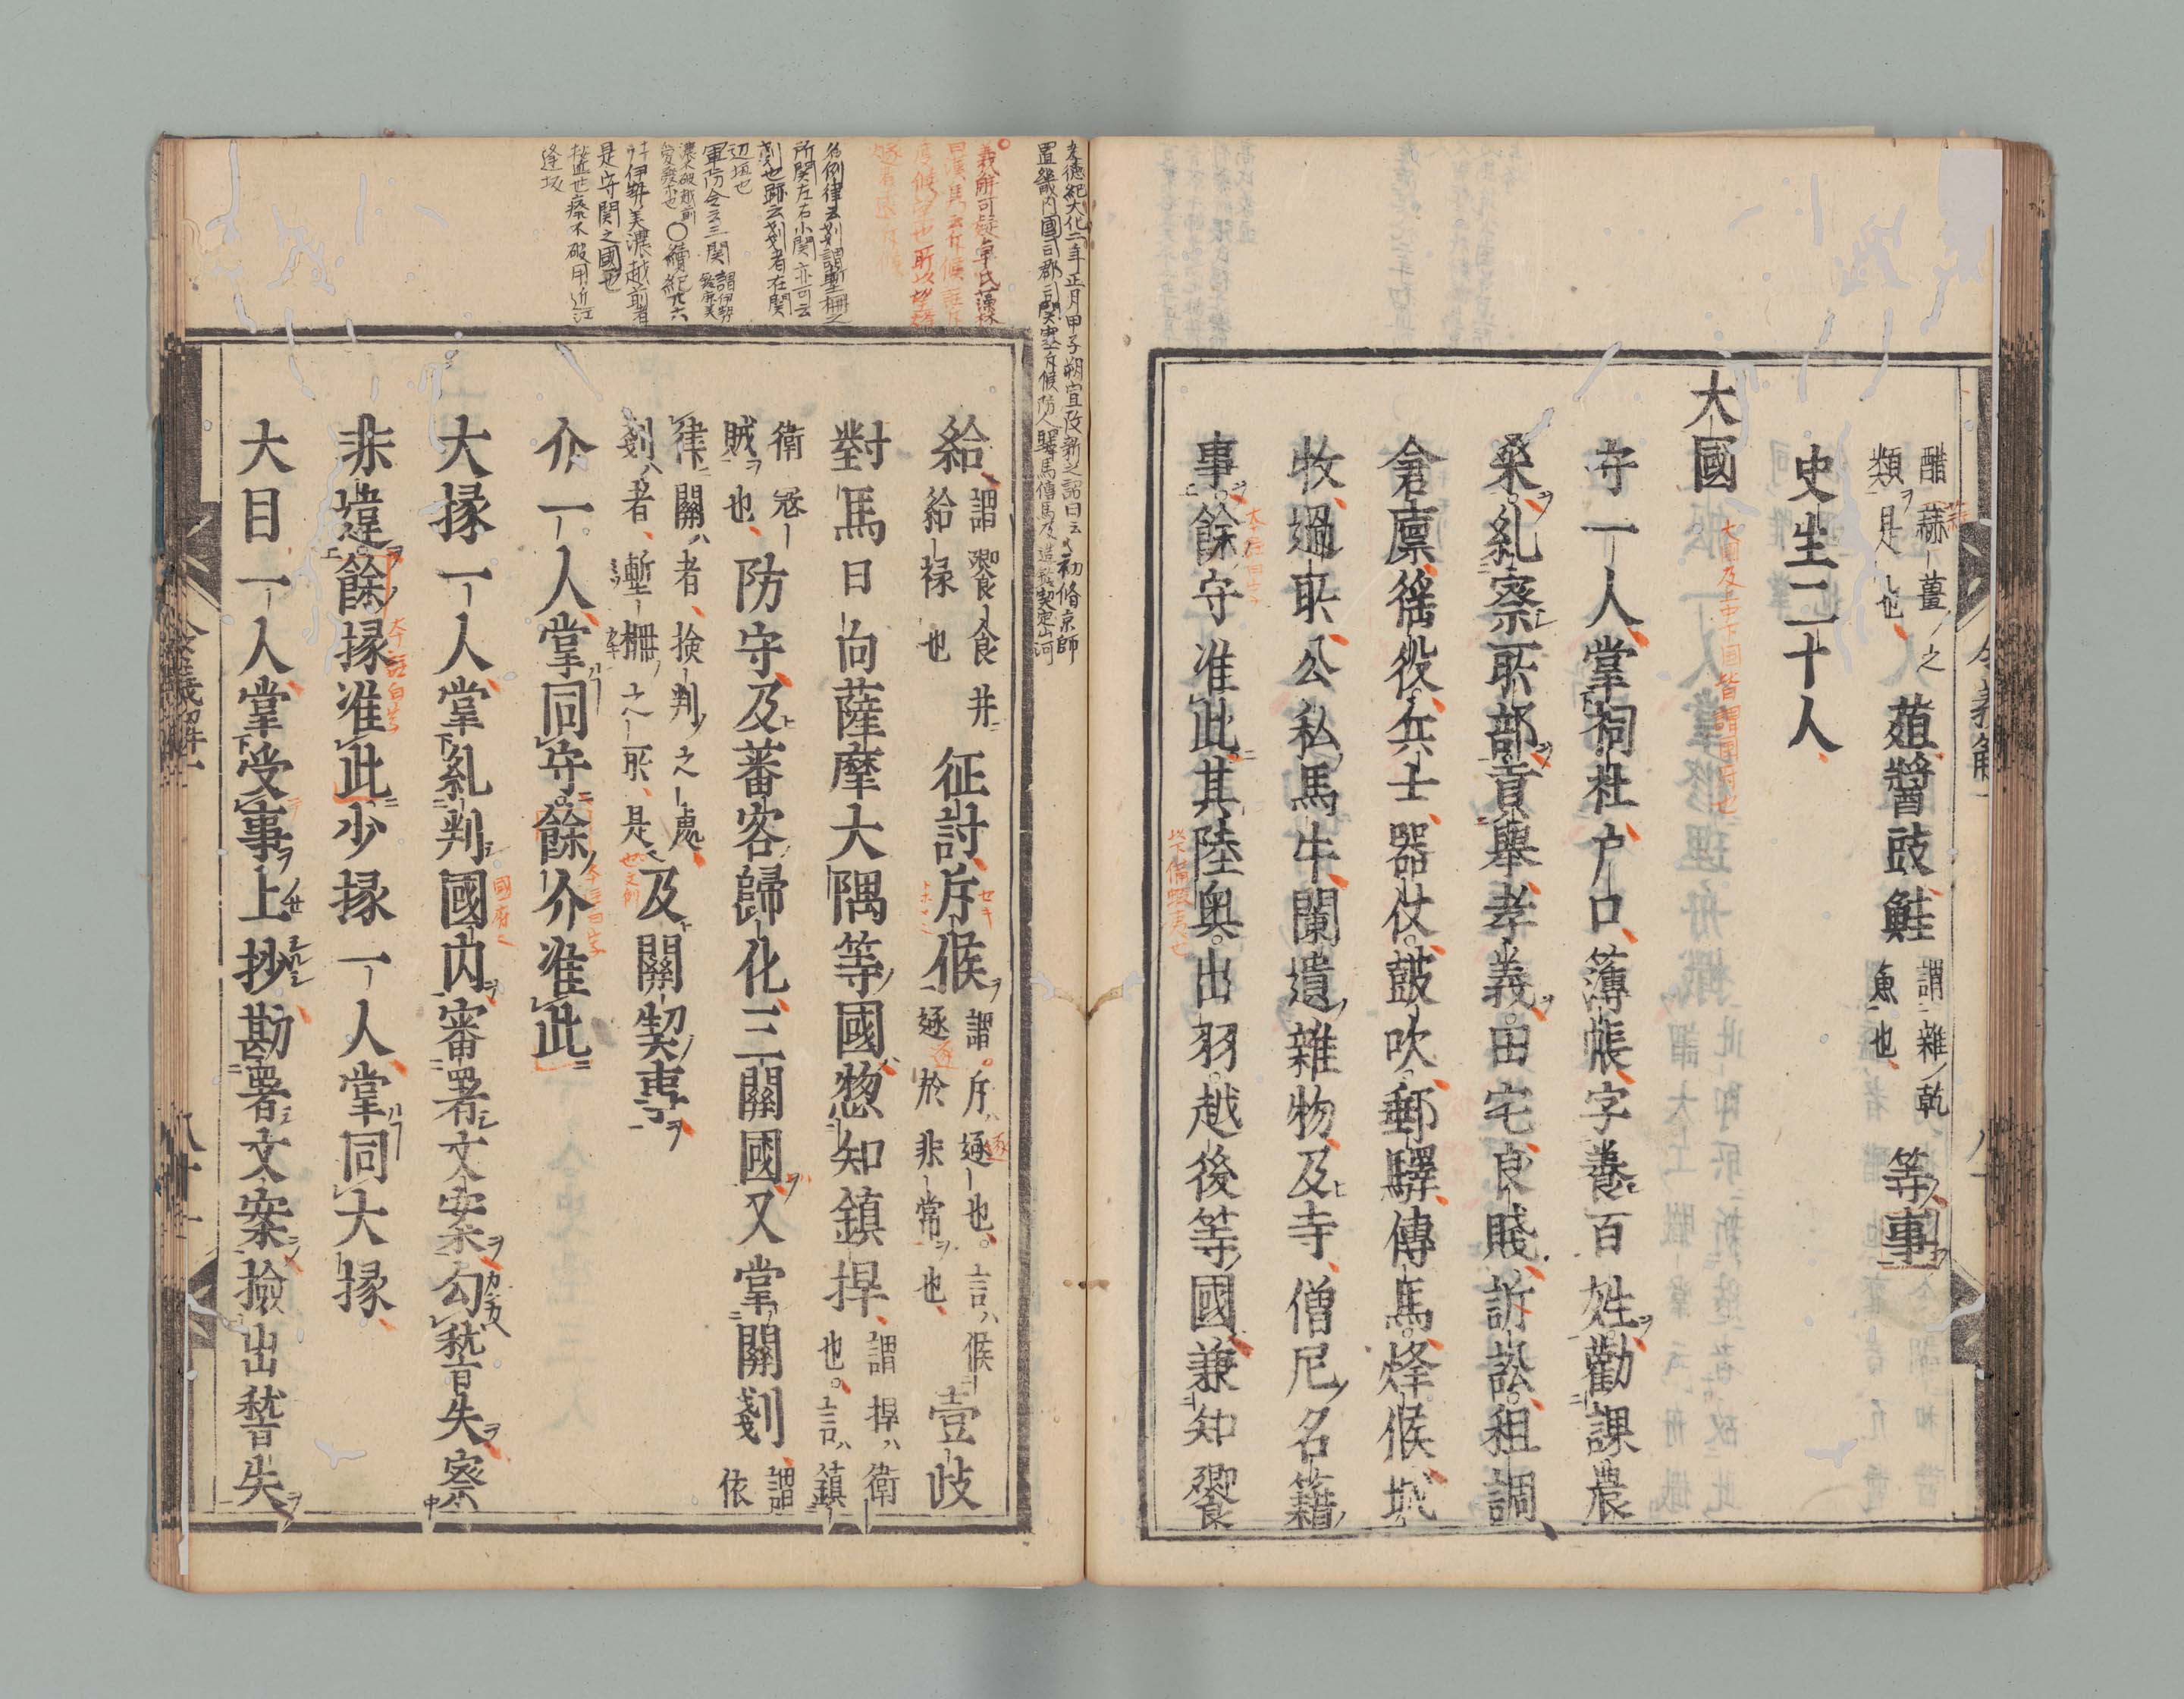 醋蒜薑之
類是也
葅醬豉鮭
謂雜乾
魚也
等事
史生二十人
大國
守一人掌祠社户口簿帳字養百姓勸課農
桒糺察所部貢舉孝義田宅良賤訴訟租調
倉廪徭役兵士器仗鼓吹郵驛傳馬烽候城
牧過所公私馬牛闌遺雜物及寺僧尼名籍
事餘守准此其陸奥出羽越後等國兼知饗
給
謂饗食并
給祿也
征討斥候
謂斥逐也言候
逐於非常也
壹岐
對馬日向薩摩大隅等國惣知鎮捍
謂捍衛
也言鎮
衛冦
賊也
防守及蕃客歸化三關國又掌關剗
謂
依
律關者撿判之處
剗者塹柵之所是
及關契事
介一人掌同守餘介准此
大掾一人掌糺判國内審署文案勾稽失察
非違餘掾准此少掾一人掌同大掾
大目一人掌受事上抄勘署文案撿出稽失
孝德紀大化二年正月甲子朔宣改新之詔曰云々初脩京師
置畿内國司郡司関塞斥候防人驛馬傳馬及造鈴契定山河
名例律云剗謂塹柵之
所関左右小関亦可云
剗也跡云剗者在関
辺垣也
軍防令云三関
謂伊勢
鈴鹿美
濃不破越前
愛發是也
○續紀
伊勢美濃越前者
是守関之國也
令義解一